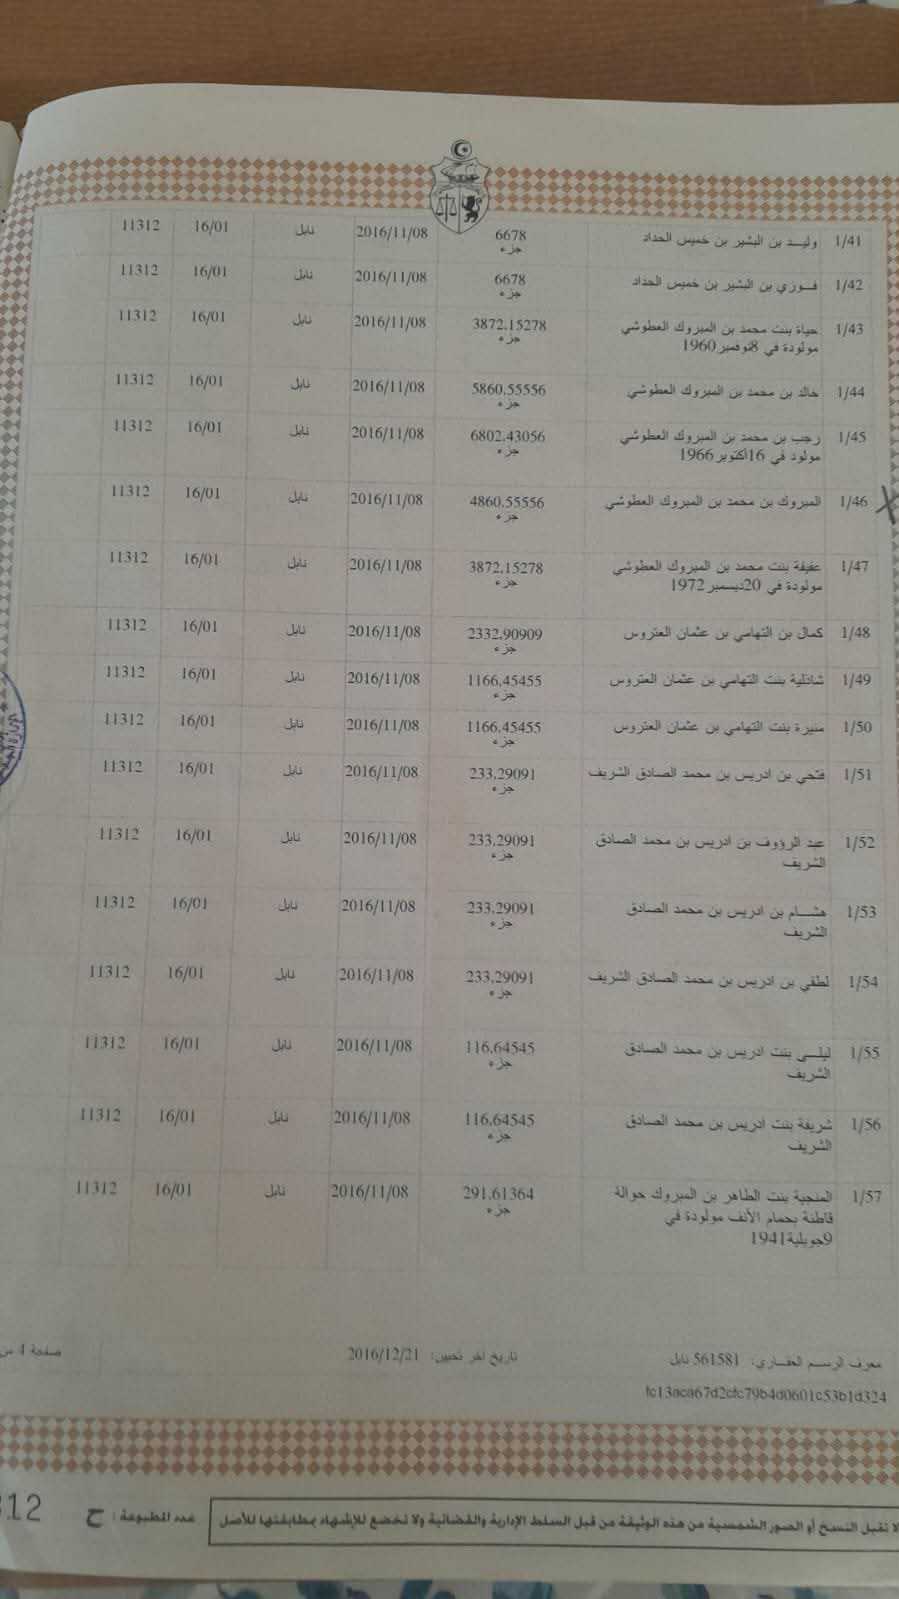 1/41 وليد بن البشير بن خميس الحداد 6678 جزء 2016/11/08 نابل 16/01 11312
1/42 فوزي بن البشير بن خميس الحداد 6678 جزء 2016/11/08 نابل 16/01 11312
1/43 حياة بنت محمد بن المبروك العطوشي 3872.15278 جزء 2016/11/08 نابل 16/01 11312
مولودة في 8نوفمبر1960
1/44 خالد بن محمد بن المبروك العطوشي 5860.55556 جزء 2016/11/08 نابل 16/01 11312
1/45 رجب بن محمد بن المبروك العطوشي 6802.43056 جزء 2016/11/08 نابل 16/01 11312
مولود في 16أكتوبر1966
1/46 المبروك بن محمد بن المبروك العطوشي 4860.55556 جزء 2016/11/08 نابل 16/01 11312
1/47 عفيفة بنت محمد بن المبروك العطوشي 3872.15278 جزء 2016/11/08 نابل 16/01 11312
مولودة في 20ديسمبر1972
1/48 كمال بن التهامي بن عثمان العتروس 2332.90909 جزء 2016/11/08 نابل 16/01 11312
1/49 شاذلية بنت التهامي بن عثمان العتروس 1166.45455 جزء 2016/11/08 نابل 16/01 11312
1/50 منيرة بنت التهامي بن عثمان العتروس 1166.45455 جزء 2016/11/08 نابل 16/01 11312
1/51 فتحي بن ادريس بن محمد الصادق الشريف 233.29091 جزء 2016/11/08 نابل 16/01 11312
1/52 عبد الرؤوف بن ادريس بن محمد الصادق 233.29091 جزء 2016/11/08 نابل 16/01 11312
الشريف
1/53 هشام بن ادريس بن محمد الصادق 233.29091 جزء 2016/11/08 نابل 16/01 11312
الشريف
1/54 لطفي بن ادريس بن محمد الصادق الشريف 233.29091 جزء 2016/11/08 نابل 16/01 11312
1/55 ليلى بنت ادريس بن محمد الصادق 116.64545 جزء 2016/11/08 نابل 16/01 11312
الشريف
1/56 شريفة بنت ادريس بن محمد الصادق 116.64545 جزء 2016/11/08 نابل 16/01 11312
الشريف
1/57 المنجية بنت الطاهر بن المبروك حوالة 291.61364 جزء 2016/11/08 نابل 16/01 11312
قاطنة بحمام الأنف مولودة في
9جويلية1941
معرف الرسم العقاري: 561581 نابل تاريخ آخر تحيين: 2016/12/21 صفحة 4 من
fc13aca67d2cfc79b4d0601c53b1d324
لا تقبل النسخ أو الصور الشمسية من هذه الوثيقة من قبل السلط الإدارية والقضائية ولا تخضع للإشهاد بمطابقتها للأصل
عدد المطبوعة : ح 312